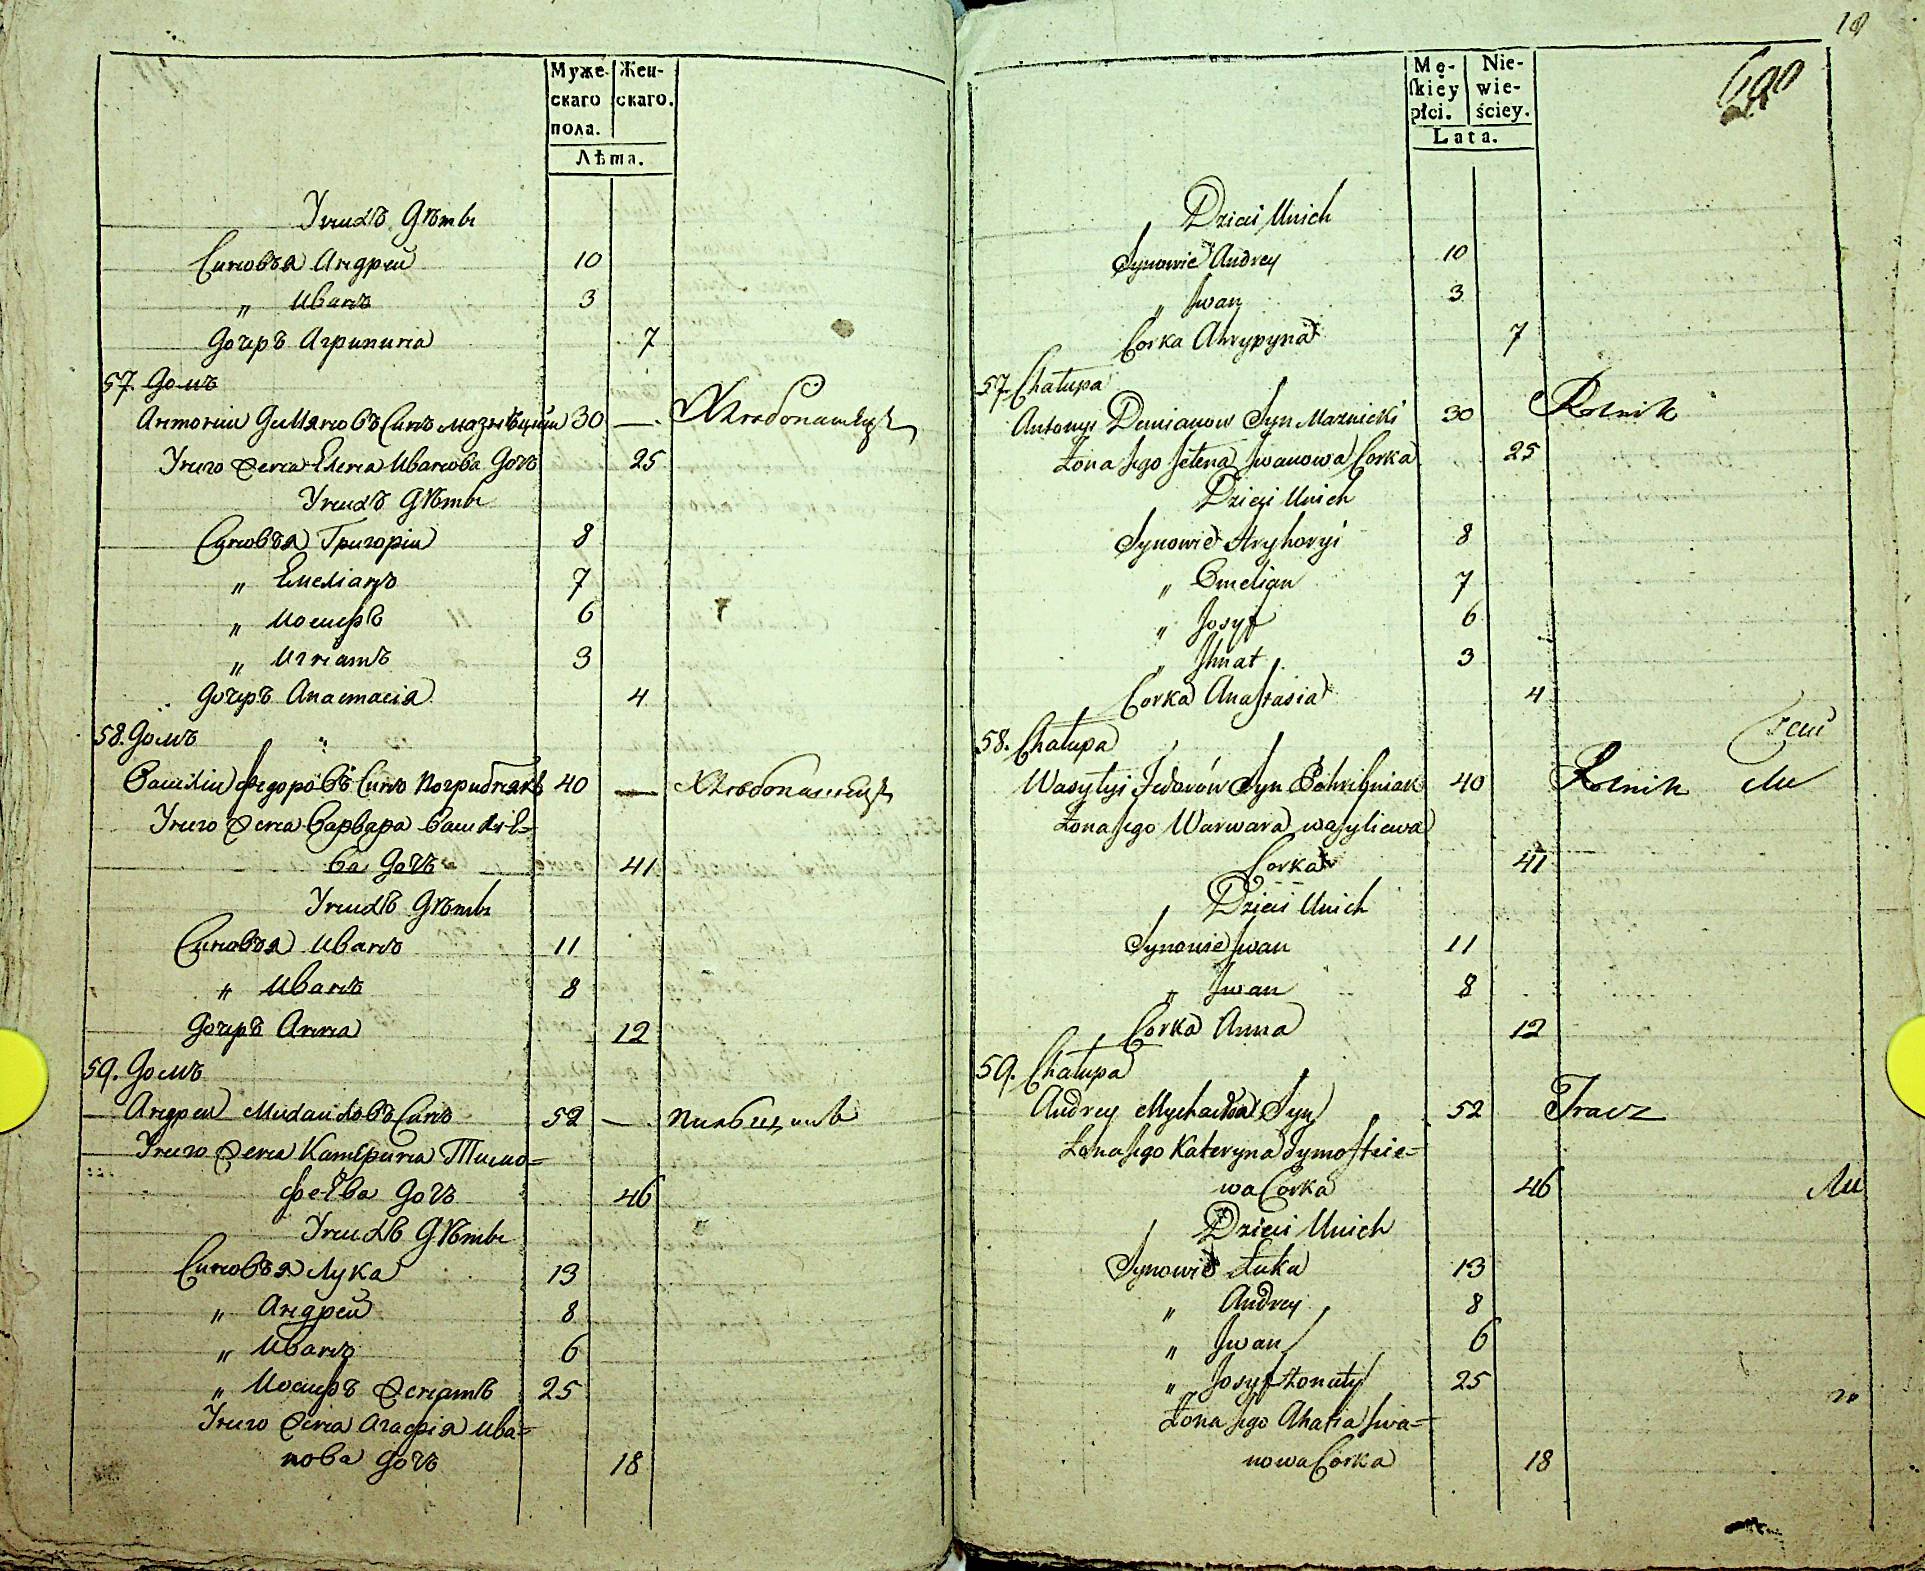 Муже-
скаго
пола.
Жен-
скаго.
Лѣта.
Унихъ Дѣти
Синовья Андрей 10
„ Иванъ 3
Дочерь Агрипина 7
57. Домъ
Антоній Демяновъ Синъ Мазнѣцкий 30 — Хлѣбопашецъ
Унего Жена Елена Иванова Дочь 25
Унихъ Дѣти
Синовья Григорій 8
„ Емеліанъ 7
„ Иосифъ 6
„ Игнатъ 3
Дочерь Анастасія 4
58. Домъ
Василій Федоровъ Синъ Погрибнякъ 40 — Хлѣбопашецъ
Унего Жена Варвара Василіе-
ва Дочь 41
Унихъ Дѣти
Синовья Иванъ 11
„ Иванъ 8
Дочерь Анна 12
59. Домъ
Андрей Михайловъ Синъ 52 — Пильщикъ
Унего Жена Катерина Тимо=
феева Дочь 46
Унихъ Дѣти
Синовья Лука 13
„ Андрей 8
„ Иванъ 6
„ Иосифъ Женатъ 25
Унего Жена Агафія Ива=
нова Дочь 18
Mę-
ſkiéy
płci.
Nie-
wie-
ściey.
Lata.
Dzieci Unich
Synowie Andrey 10
„ Jwan 3
Corka Ahrypyna 7
57. Chałupa
Antonyi Demianow Syn Maznicki 30 Rolnik
Żona Jego Jełena Jwanowa Corka 25
Dzieci Unich
Synowie Hryhoryi 8
„ Emelian 7
„ Josyf 6
„ Jhnat 3
Corka Anaſtasia 4
58. Chałupa
Wasylyi Fedorów Syn Pohribniak 40 Rolnik
Żona Jego Warwara Waſyliewa
Corka 41
Dzieci Unich
Synowie Jwan 11
„ Jwan 8
Corka Anna 12
59. Chałupa
Andrey Mychaiłow Syn 52 Tracz
Żona Jego Kateryna Tymoſtie=
wa Corka 46
Dzieci Unich
Synowie Łuka 13
„ Andrey 8
„ Jwan 6
„ Josyf Żonaty 25
Żona Jego Ahafia Jwa=
nowa Corka 18